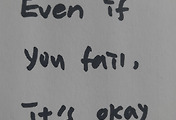 Even if
you fail,
it's okay